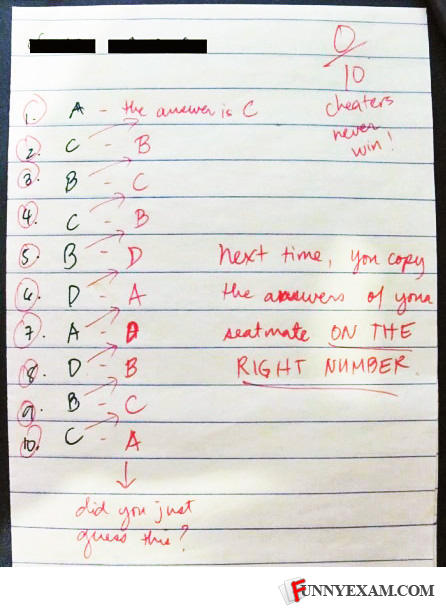 0
10
cheaters
never
win!
1. A - the answer is C
2. C - B
3. B - C
4. C - B
5. B - D
6. D - A
7. A - D
8. D - B
9. B - C
10. C - A
Next time, you copy
the answers of your
seatmate ON THE
RIGHT NUMBER.
did you just
guess this?
FUNNYEXAM.COM